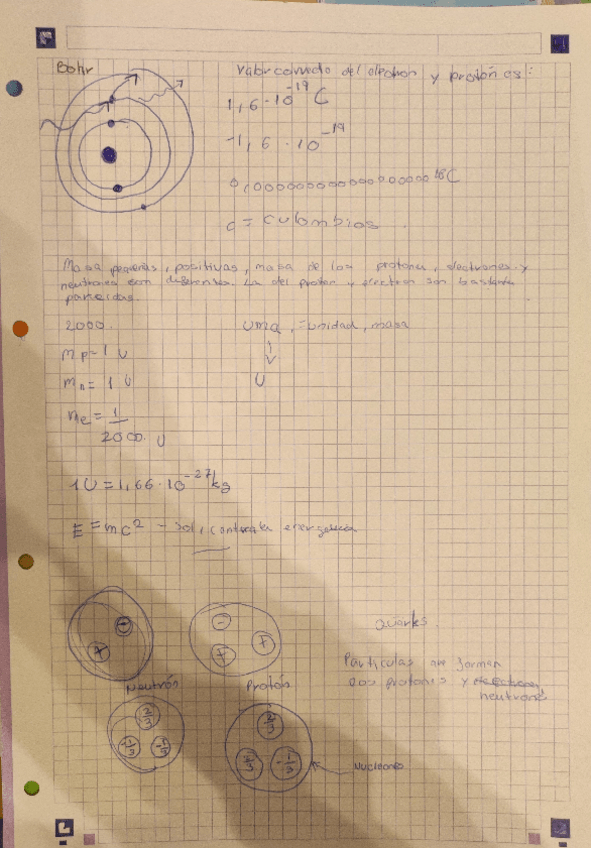 Bohr
valor corriente del electron y protón es:
1,6·10⁻¹⁹ C
-1,6 · 10⁻¹⁹
0,0000000000000000000 16C
c = culombios.
Masa pequeñas, positivas, masa de los protones, electrones y
neutrones son diferentes. La del proton y electron son bastante
parecidas.
2000.
uma, =unidad, masa
mp=1 U
U
mn=1 U
me = 1/2000. U
1U=1,66·10⁻²⁷ kg
E=mc² - sol,
+
-
+
+
Quarks.
Particulas que forman
Dos protones y
neutrones
Neutrón
Protón
2/3
-1/3
-1/3
2/3
2/3
-1/3
Nucleones